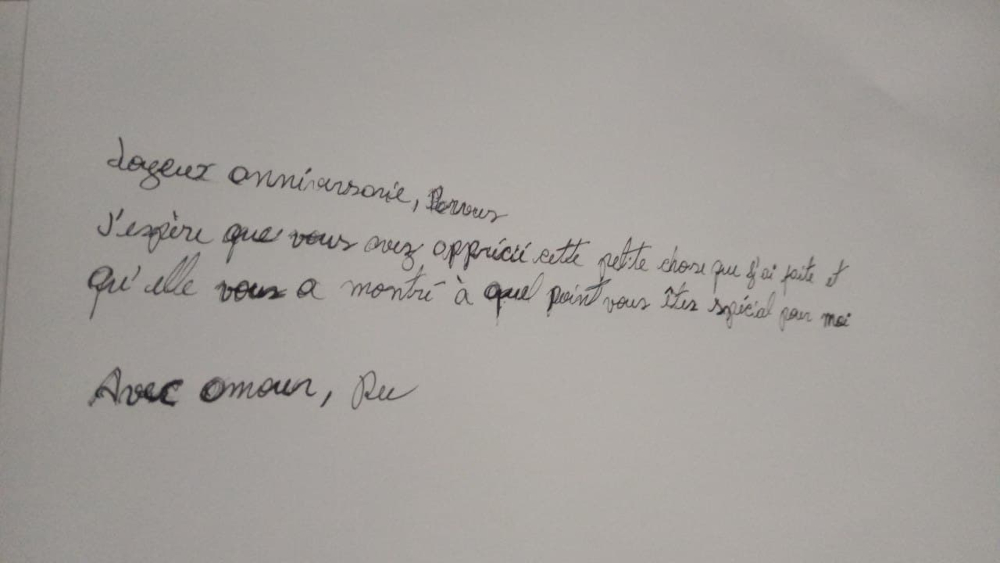 Joyeux anniversarie,
J'espère que vous avez apprécié cette petite chose que j'ai faite et
qu'elle vous a montré à quel point vous êtes spécial pour moi
Avec amour,